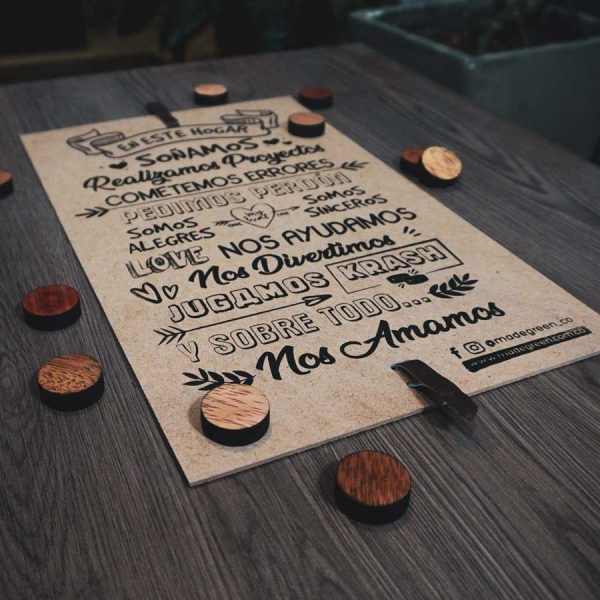 EN ESTE HOGAR
SOÑAMOS
Realizamos Proyectos
COMETEMOS ERRORES
PEDIMOS PERDÓN
SOMOS ALEGRES
SOMOS SINCEROS
LOVE NOS AYUDAMOS
Nos Divertimos
JUGAMOS KRASH
Y SOBRE TODO...
Nos Amamos
@madegreen_co
www.madegreen.com.co